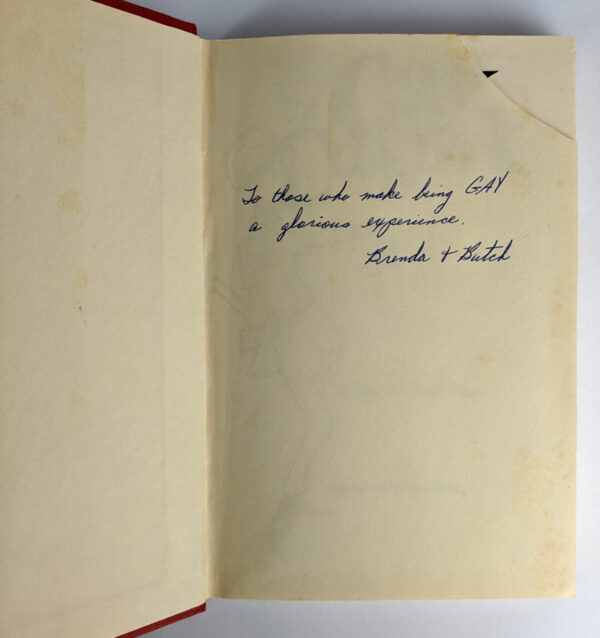 To those who make being GAY
a glorious experience.
Brenda & Butch